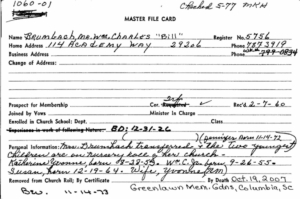 1060-01 Checked 5-77 MKH
MASTER FILE CARD
Name Brumbach, Mr. Wm. Charles "Bill" Register No. 5756
Home Address 114 Academy Way 29206 Phone 7873919
Business Address Phone 799-0834
Change of Address:
Prospect for Membership Cor. Rec'd 2-7-60
Joined by Vows Minister In Charge
Enrolled in Church School: Dept. Class
Experience in work of following Nature: BD: 12-31-26
(Jennifer Born 11-14-72
Personal Information: Mrs. Brumbach transferred, & the two youngest
children are on nursery roll of her church.
Katherine Yvonne, born 8-28-53. Wm. C. Jr. born, 9-26-55.
Susan, born 12-19-64. Wife Yvonne
Removed from Church Roll: By Certificate By Death Oct. 19, 2007
11-14-73 Greenlawn Mem. Gdns, Columbia, SC